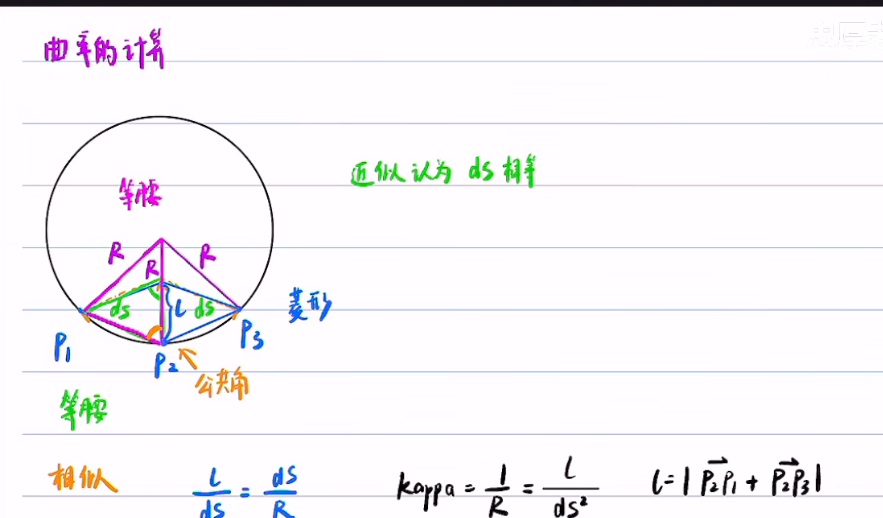 曲率的计算
近似认为 ds 相等
等腰
R R
R
ds l ds
菱形
P₁ P₃
P₂
公共角
等腰
相似 L/ds = ds/R kappa = 1/R = l/ds² l = |P₂P₁⃗ + P₂P₃⃗|